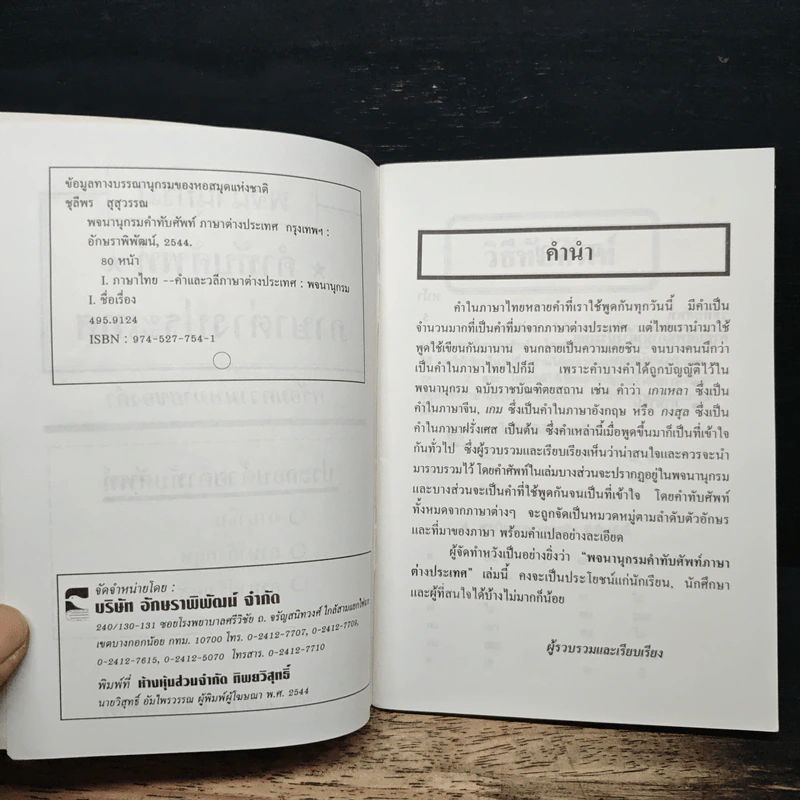 ข้อมูลทางบรรณานุกรมของหอสมุดแห่งชาติ
ชุลีพร สุสุวรรณ
พจนานุกรมคำทับศัพท์ ภาษาต่างประเทศ กรุงเทพฯ :
อักษราพิพัฒน์, 2544.
80 หน้า
I. ภาษาไทย --คำและวลีภาษาต่างประเทศ : พจนานุกรม
I. ชื่อเรื่อง
495.9124
ISBN : 974-527-754-1
จัดจำหน่ายโดย :
บริษัท อักษราพิพัฒน์ จำกัด
240/130-131 ซอยโรงพยาบาลศรีวิชัย ถ. จรัญสนิทวงศ์ ใกล้สามแยกไฟฉาย
เขตบางกอกน้อย กทม. 10700 โทร. 0-2412-7707, 0-2412-7709,
0-2412-7615, 0-2412-5070 โทรสาร. 0-2412-7710
พิมพ์ที่ ห้างหุ้นส่วนจำกัด ทิพยวิสุทธิ์
นายวิสุทธิ์ อัมไพรวรรณ ผู้พิมพ์ผู้โฆษณา พ.ศ. 2544
คำนำ
คำในภาษาไทยหลายคำที่เราใช้พูดกันทุกวันนี้ มีคำเป็น
จำนวนมากที่เป็นคำที่มาจากภาษาต่างประเทศ แต่ไทยเรานำมาใช้
พูดใช้เขียนกันมานาน จนกลายเป็นความเคยชิน จนบางคนนึกว่า
เป็นคำในภาษาไทยไปก็มี เพราะคำบางคำได้ถูกบัญญัติไว้ใน
พจนานุกรม ฉบับราชบัณฑิตยสถาน เช่น คำว่า เกาเหลา ซึ่งเป็น
คำในภาษาจีน, เกม ซึ่งเป็นคำในภาษาอังกฤษ หรือ กงสุล ซึ่งเป็น
คำในภาษาฝรั่งเศส เป็นต้น ซึ่งคำเหล่านี้เมื่อพูดขึ้นมาก็เป็นที่เข้าใจ
กันทั่วไป ซึ่งผู้รวบรวมและเรียบเรียงเห็นว่าน่าสนใจและควรจะนำ
มารวบรวมไว้ โดยคำศัพท์ในเล่มบางส่วนจะปรากฏอยู่ในพจนานุกรม
และบางส่วนจะเป็นคำที่ใช้พูดกันจนเป็นที่เข้าใจ โดยคำทับศัพท์
ทั้งหมดจากภาษาต่างๆ จะถูกจัดเป็นหมวดหมู่ตามลำดับตัวอักษร
และที่มาของภาษา พร้อมคำแปลอย่างละเอียด
ผู้จัดทำหวังเป็นอย่างยิ่งว่า "พจนานุกรมคำทับศัพท์ภาษา
ต่างประเทศ" เล่มนี้ คงจะเป็นประโยชน์แก่นักเรียน, นักศึกษา
และผู้ที่สนใจได้บ้างไม่มากก็น้อย
ผู้รวบรวมและเรียบเรียง